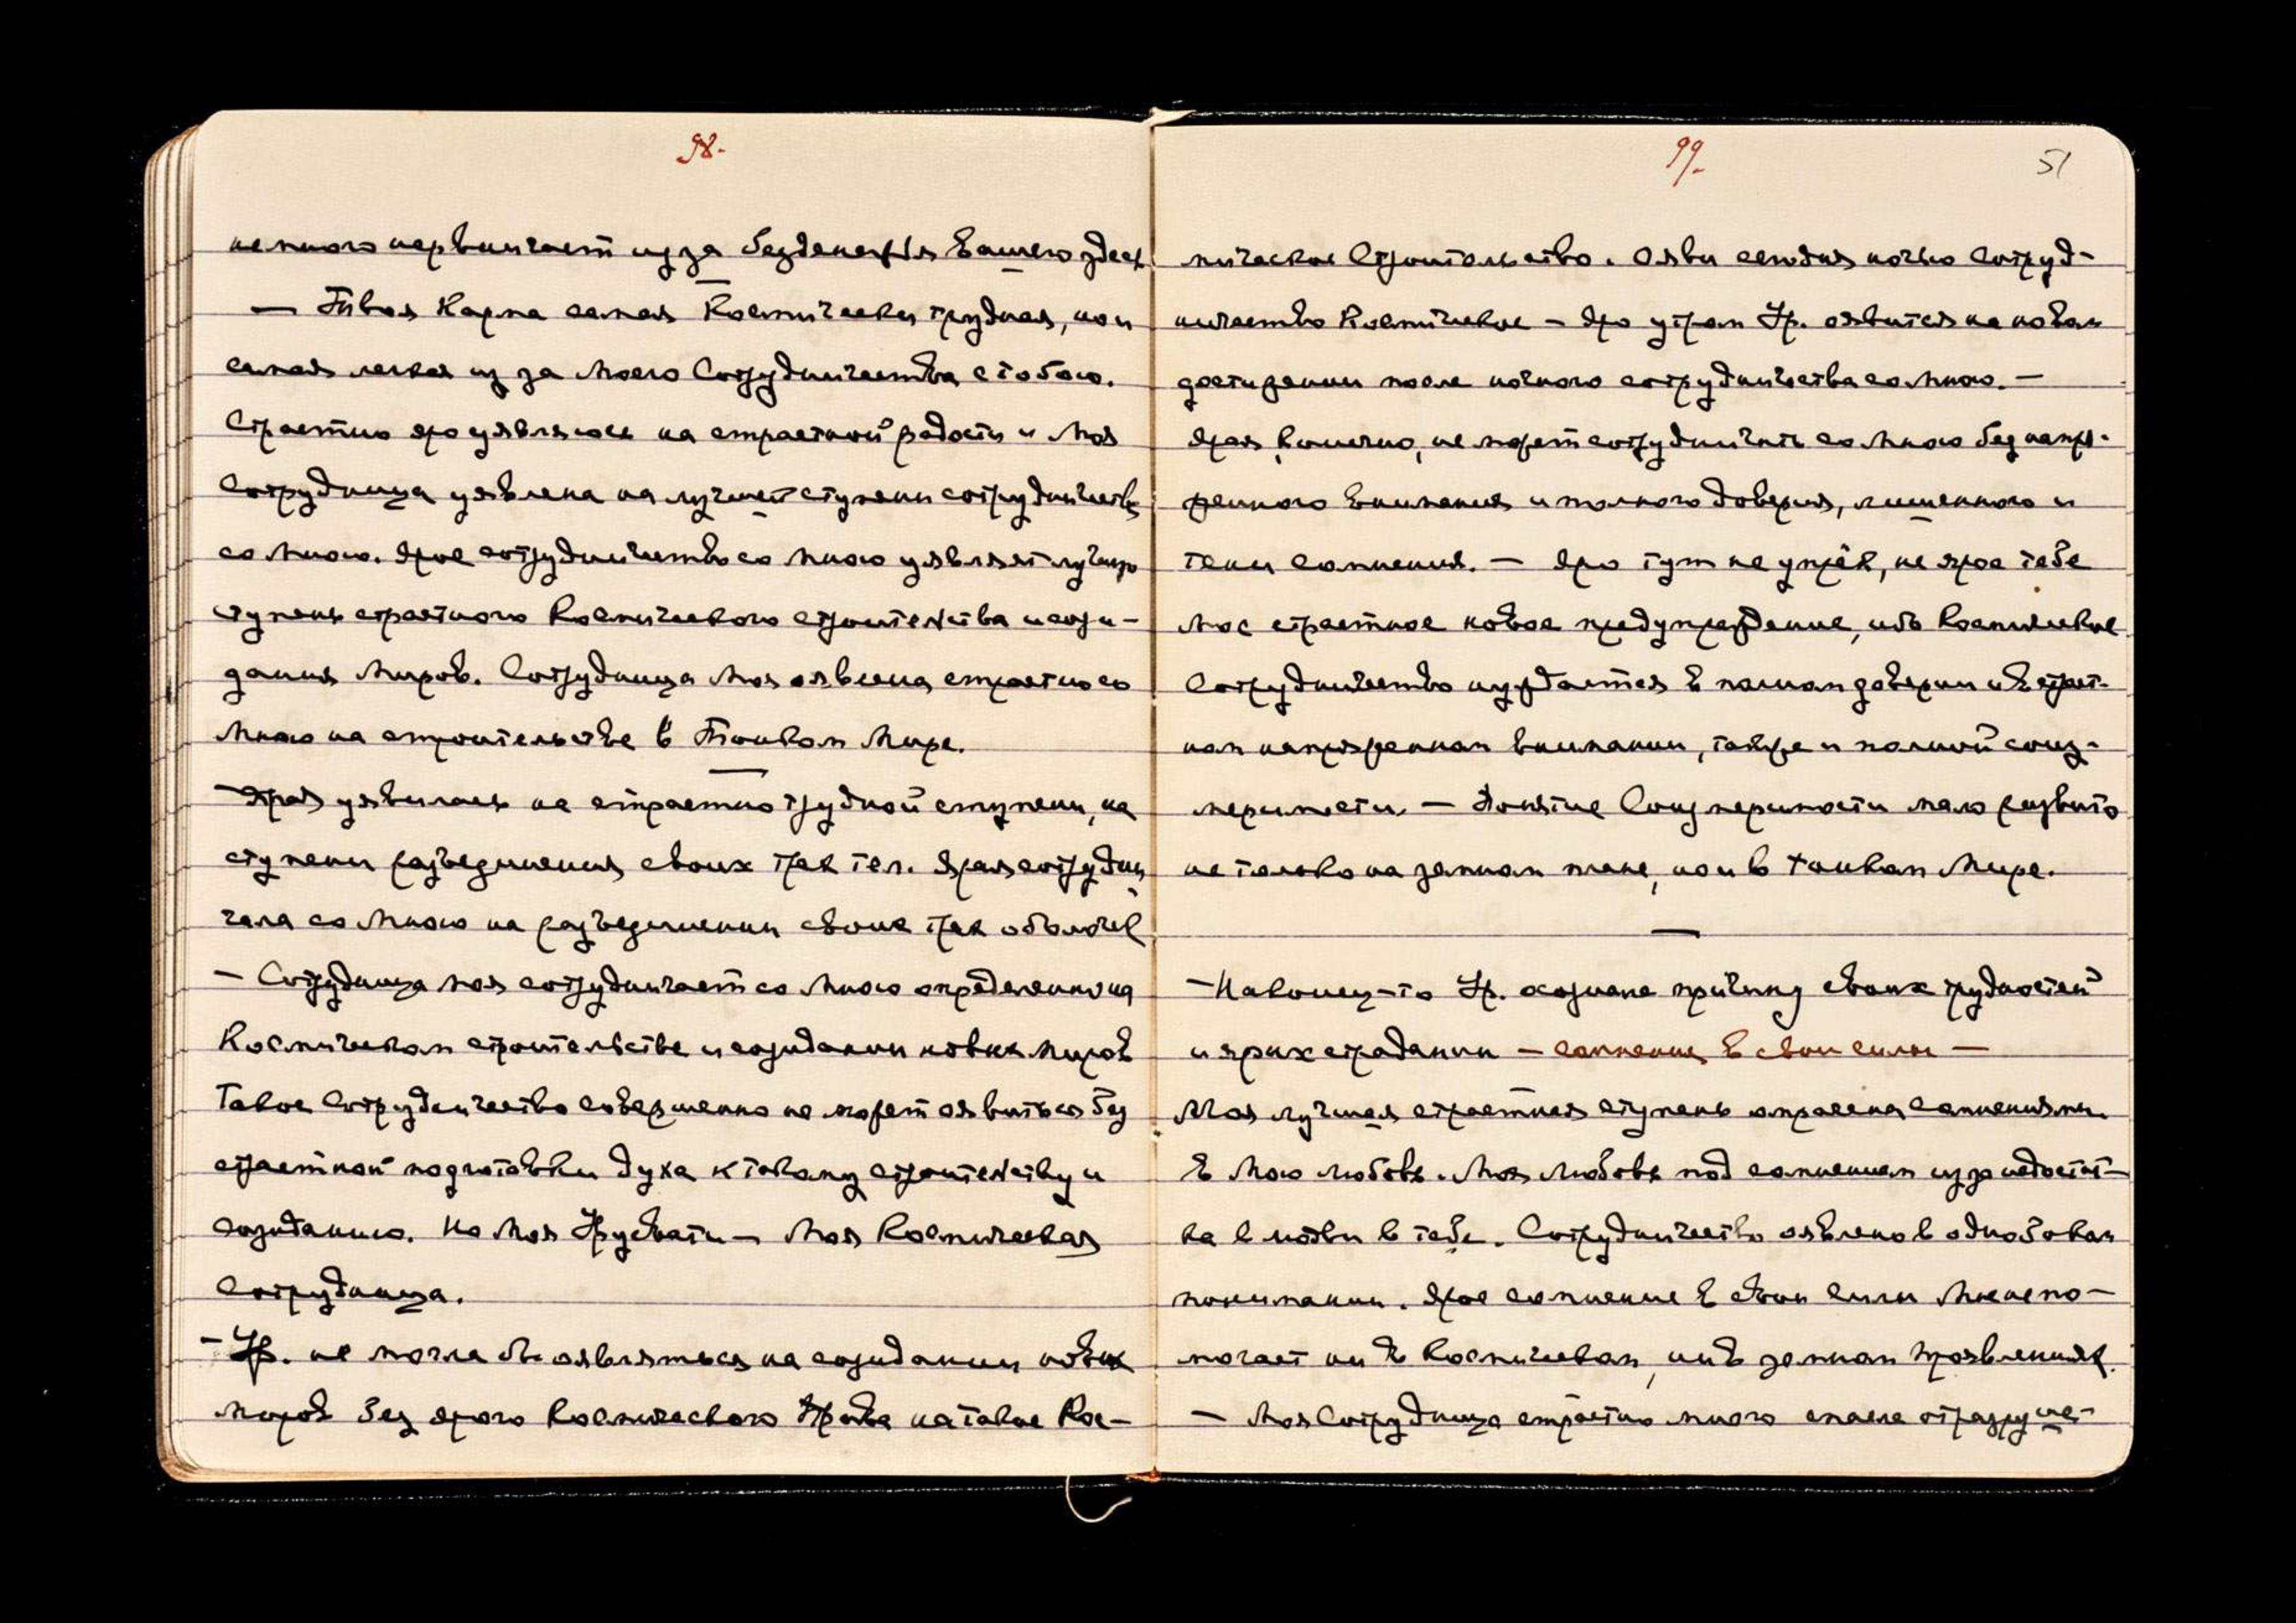 98.
немного нервничает из за безденежья Вашего здесь
— Твоя Карма самая Космически трудная, но и
самая легкая из за Моего Сотрудничества с тобою.
Страстно яро уявляюсь на страстной радости и Моя
Сотрудница уявлена на лучшей ступени сотрудничества
со Мною. Ярое сотрудничество со Мною уявляет лучшую
ступень страстного Космического строительства и сози-
дания Миров. Сотрудница Моя оявлена страстно со
Мною на строительстве в Тонком Мире.
Ярая уявилась на страстно трудной ступени, на
ступени разъединения своих трех тел. Ярая сотрудни
чала со Мною на разъединении своих трех оболочек
— Сотрудница Моя сотрудничает со Мною определенно на
Космическом строительстве и созидании новых миров
Такое Сотрудничество совершенно не может оявиться без
страстной подготовки духа к такому строительству и
созиданию. Но Моя Урусвати — Моя Космическая
Сотрудница.
— Ур. не могла бы оявляться на созидании новых
миров без ярого Космического Права на такое Кос-
99.
51
мическое Строительство. Ояви сегодня ночью Сотруд-
ничество Космическое — Яро утром Ур. оявится на новом
достижении после ночного сотрудничества со Мною. —
Ярая, конечно, не может сотрудничать со Мною без напря-
женного внимания и полного доверия, лишенного и
тени сомнения. — Яро тут не упрёк, не ярое тебе
Мое страстное новое предупреждение, ибо Космическое
Сотрудничество нуждается в полном доверии и в страст-
ном напряженном внимании, также и полной соиз-
меримости. — Понятие Соизмеримости мало развито
не только на земном плане, но и в Тонком Мире.
— Наконец-то Ур. осознала причину своих трудностей
и ярых страданий — сомнение в свои силы —
Моя лучшая страстная ступень омрачена сомнениями
в Мою любовь. Моя Любовь под сомнением из за недостат-
ка любви в тебе. Сотрудничество оявлено в однобоком
понимании. Ярое сомнение в свои силы Мне не по-
могает ни в Космическом, ни в земном проявлениях.
— Моя Сотрудница страстно много спасла от разруше-